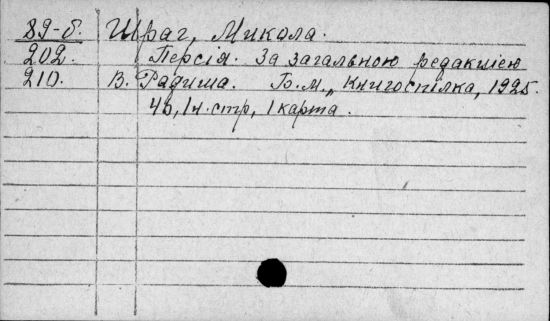 89-б. Шраг, Микола.
202. Персія. За загальною редакцією
210. В. Радиша. Б.М., Книгоспілка, 1925.
46, 1 н. стр, 1 карта.